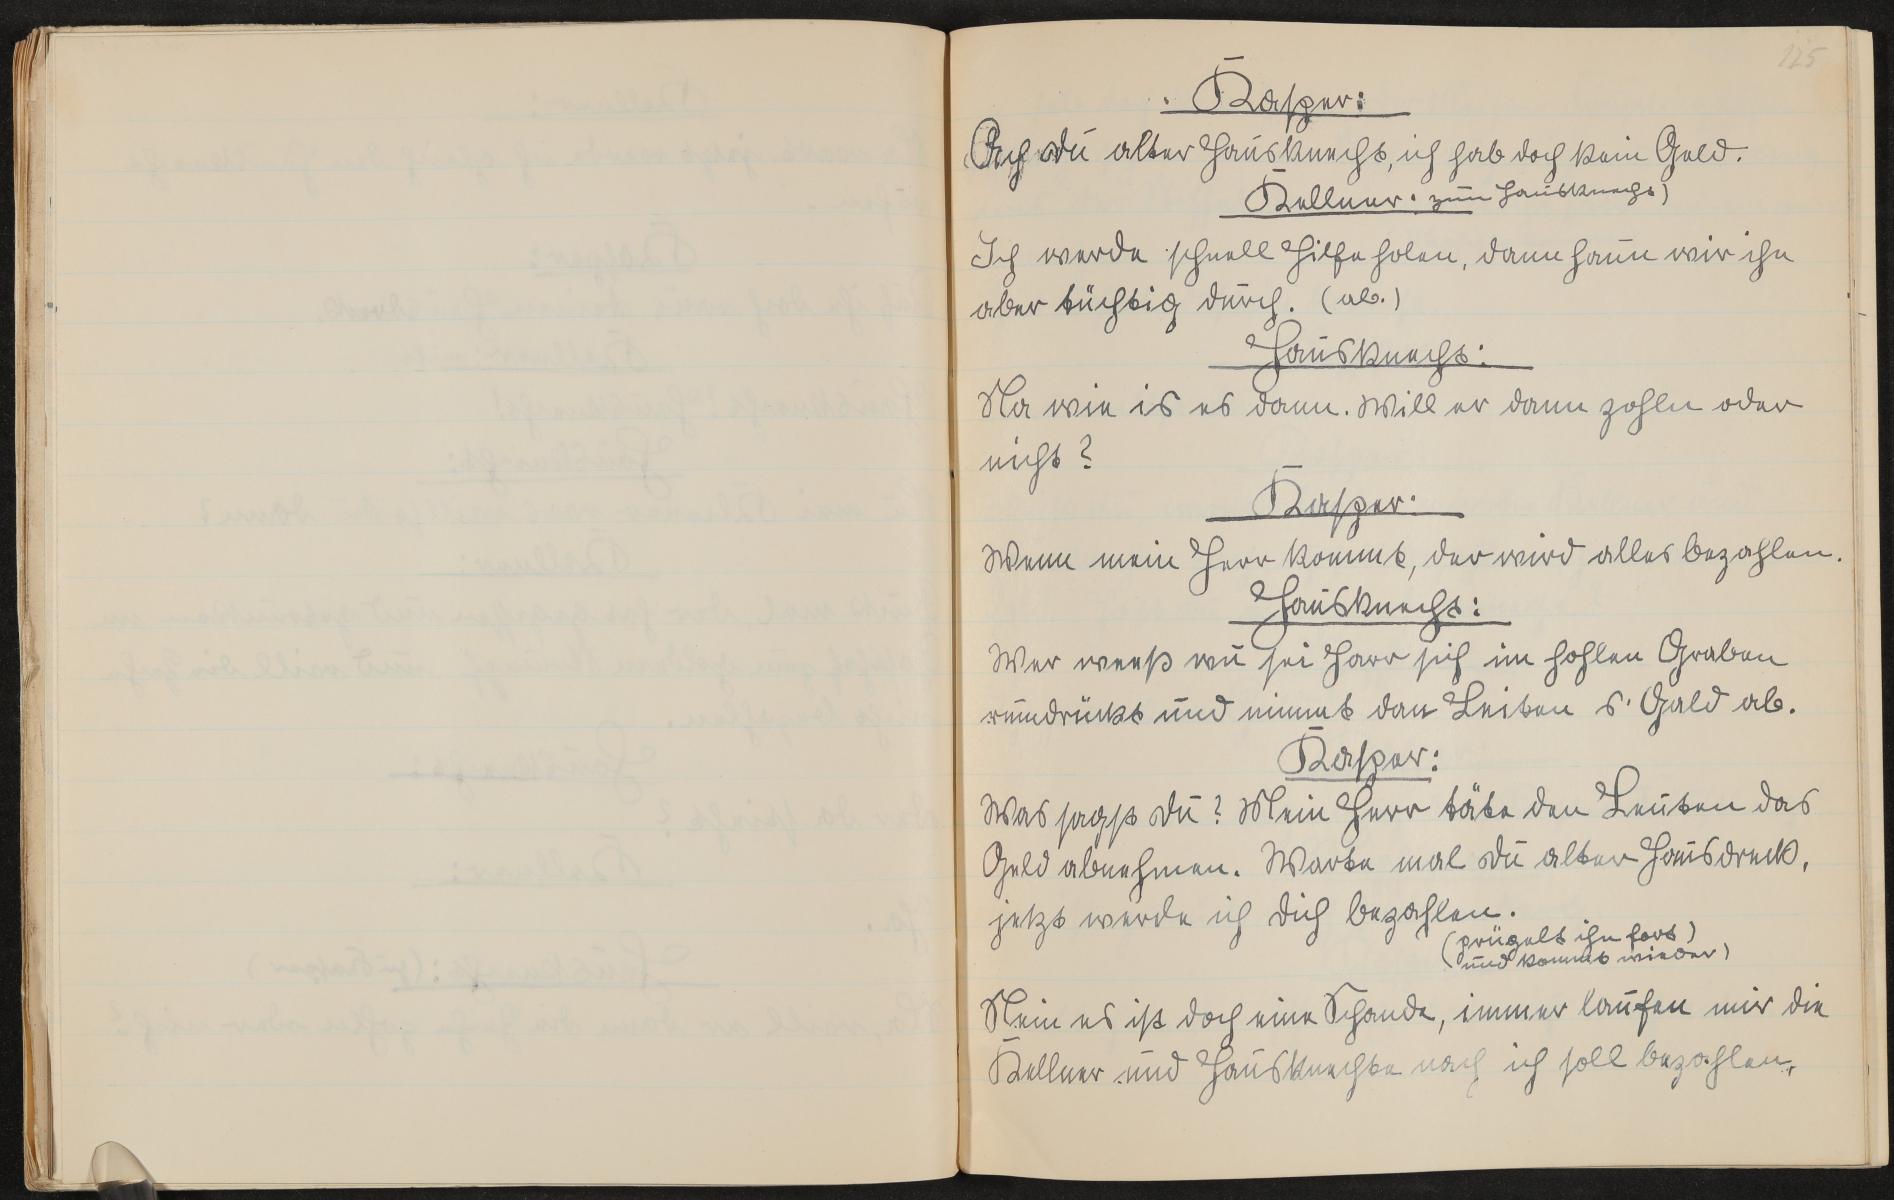 125
Kasper:
Ach du alter Hausknecht, ich hab doch kein Geld.
Kellner: zum Hausknecht)
Ich werde schnell Hilfe holen, dann haun wir ihn
aber tüchtig durch. (ab.)
Hausknecht:
Na wie is es dann. Will er dann zohln oder
nicht?
Kasper:
Wenn mein Herr kommt, der wird alles bezahlen.
Hausknecht:
Wer weeß wu sei Harr sich im hohlen Graben
rumdrückt und nimmt dan Leiten s' Gald ab.
Kasper:
Was sagst du? Mein Herr täte den Leuten das
Geld abnehmen. Warte mal du alter Hausdreck,
jetzt werde ich dich bezahlen.
(prügelt ihn fort)
(und kommt wieder)
Nein es ist doch eine Schande, immer laufen mir die
Kellner und Hausknechte nach ich soll bezahlen,